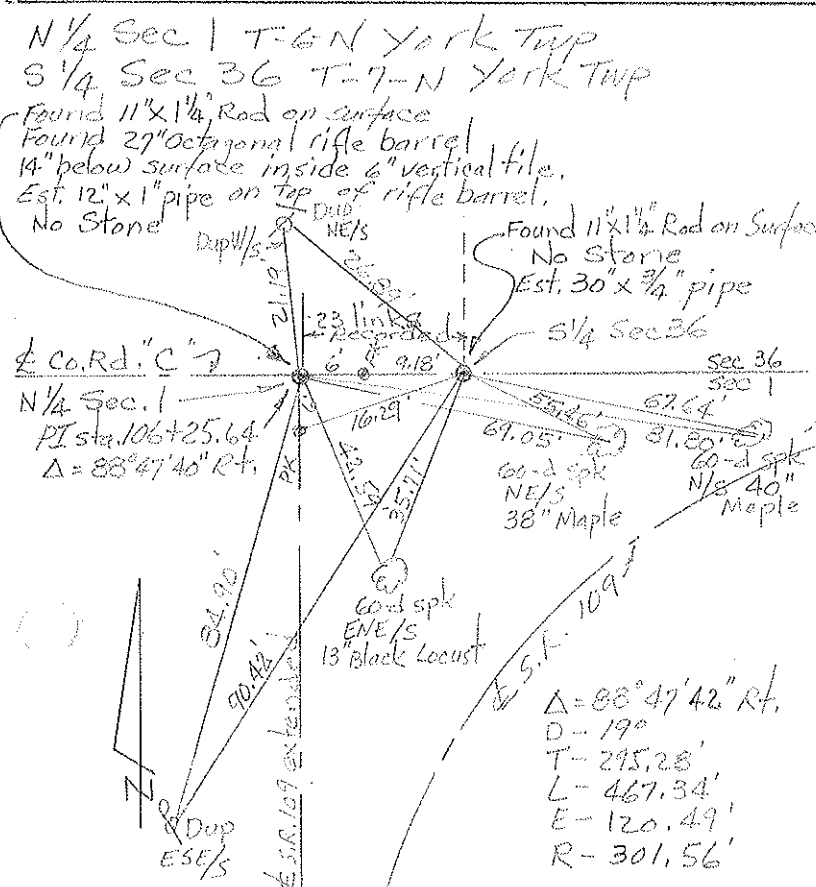 N 1/4 Sec 1 T-6-N York Twp
S 1/4 Sec 36 T-7-N York Twp
Found 11"X1¼" Rod on surface
Found 27" Octagonal rifle barrel
14" below surface inside 6" vertical tile.
Est. 12" x 1" pipe on top of rifle barrel.
No Stone
Dup W/S
Dup
NE/S
Found 11"X1¼" Rod on Surface
No Stone
Est. 30" x ¾" pipe
S 1/4 Sec 36
21.19'
23 links
Recorded
℄ Co. Rd. "C"
6'
PK
9.18'
Sec 36
Sec 1
N 1/4 Sec. 1
PI sta. 106+25.64'
Δ = 88°47'40" Rt.
6'
PK
16.29'
42.59'
35.71'
55.46'
69.05'
67.64'
81.80'
60-d spk
NE/S
38" Maple
60-d spk
N/S 40"
Maple
60-d spk
ENE/S
13" Black Locust
84.90'
90.42'
℄ S.R. 109 extended
℄ S.R. 109
N
Dup
ESE/S
Δ = 88°47'42" Rt.
D - 19°
T - 295.28'
L - 467.34'
E - 120.49'
R - 301.56'